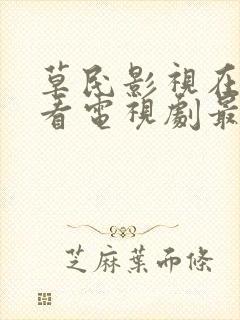 草民影視在
看電視劇最
芝麻葉而條